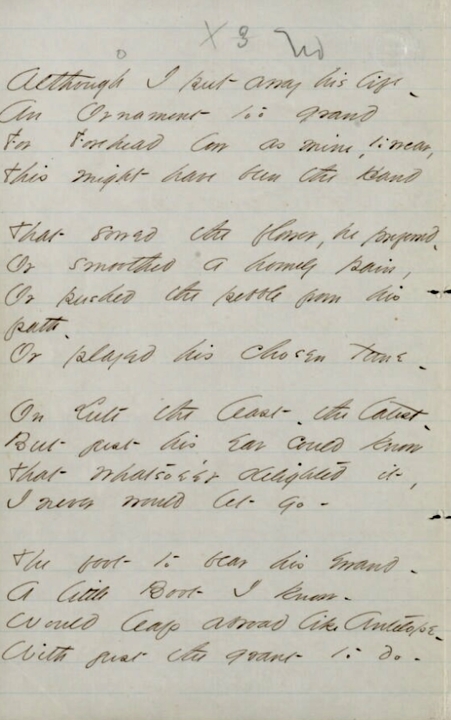 X 3
Although I put away his life -
An Ornament too grand
For Forehead low as mine, to wear,
This might have been the Hand

That sowed the flower, he preferred -
Or smoothed a homely pain,
Or pushed the pebble from his
path -
Or played his chosen tune -

On Lute the least - the latest -
But just his Ear could know
That whatsoe'er delighted it,
I never would let go -

The foot to bear his errand -
A little Boot I know -
Would leap abroad like Antelope -
With just the grant to do -